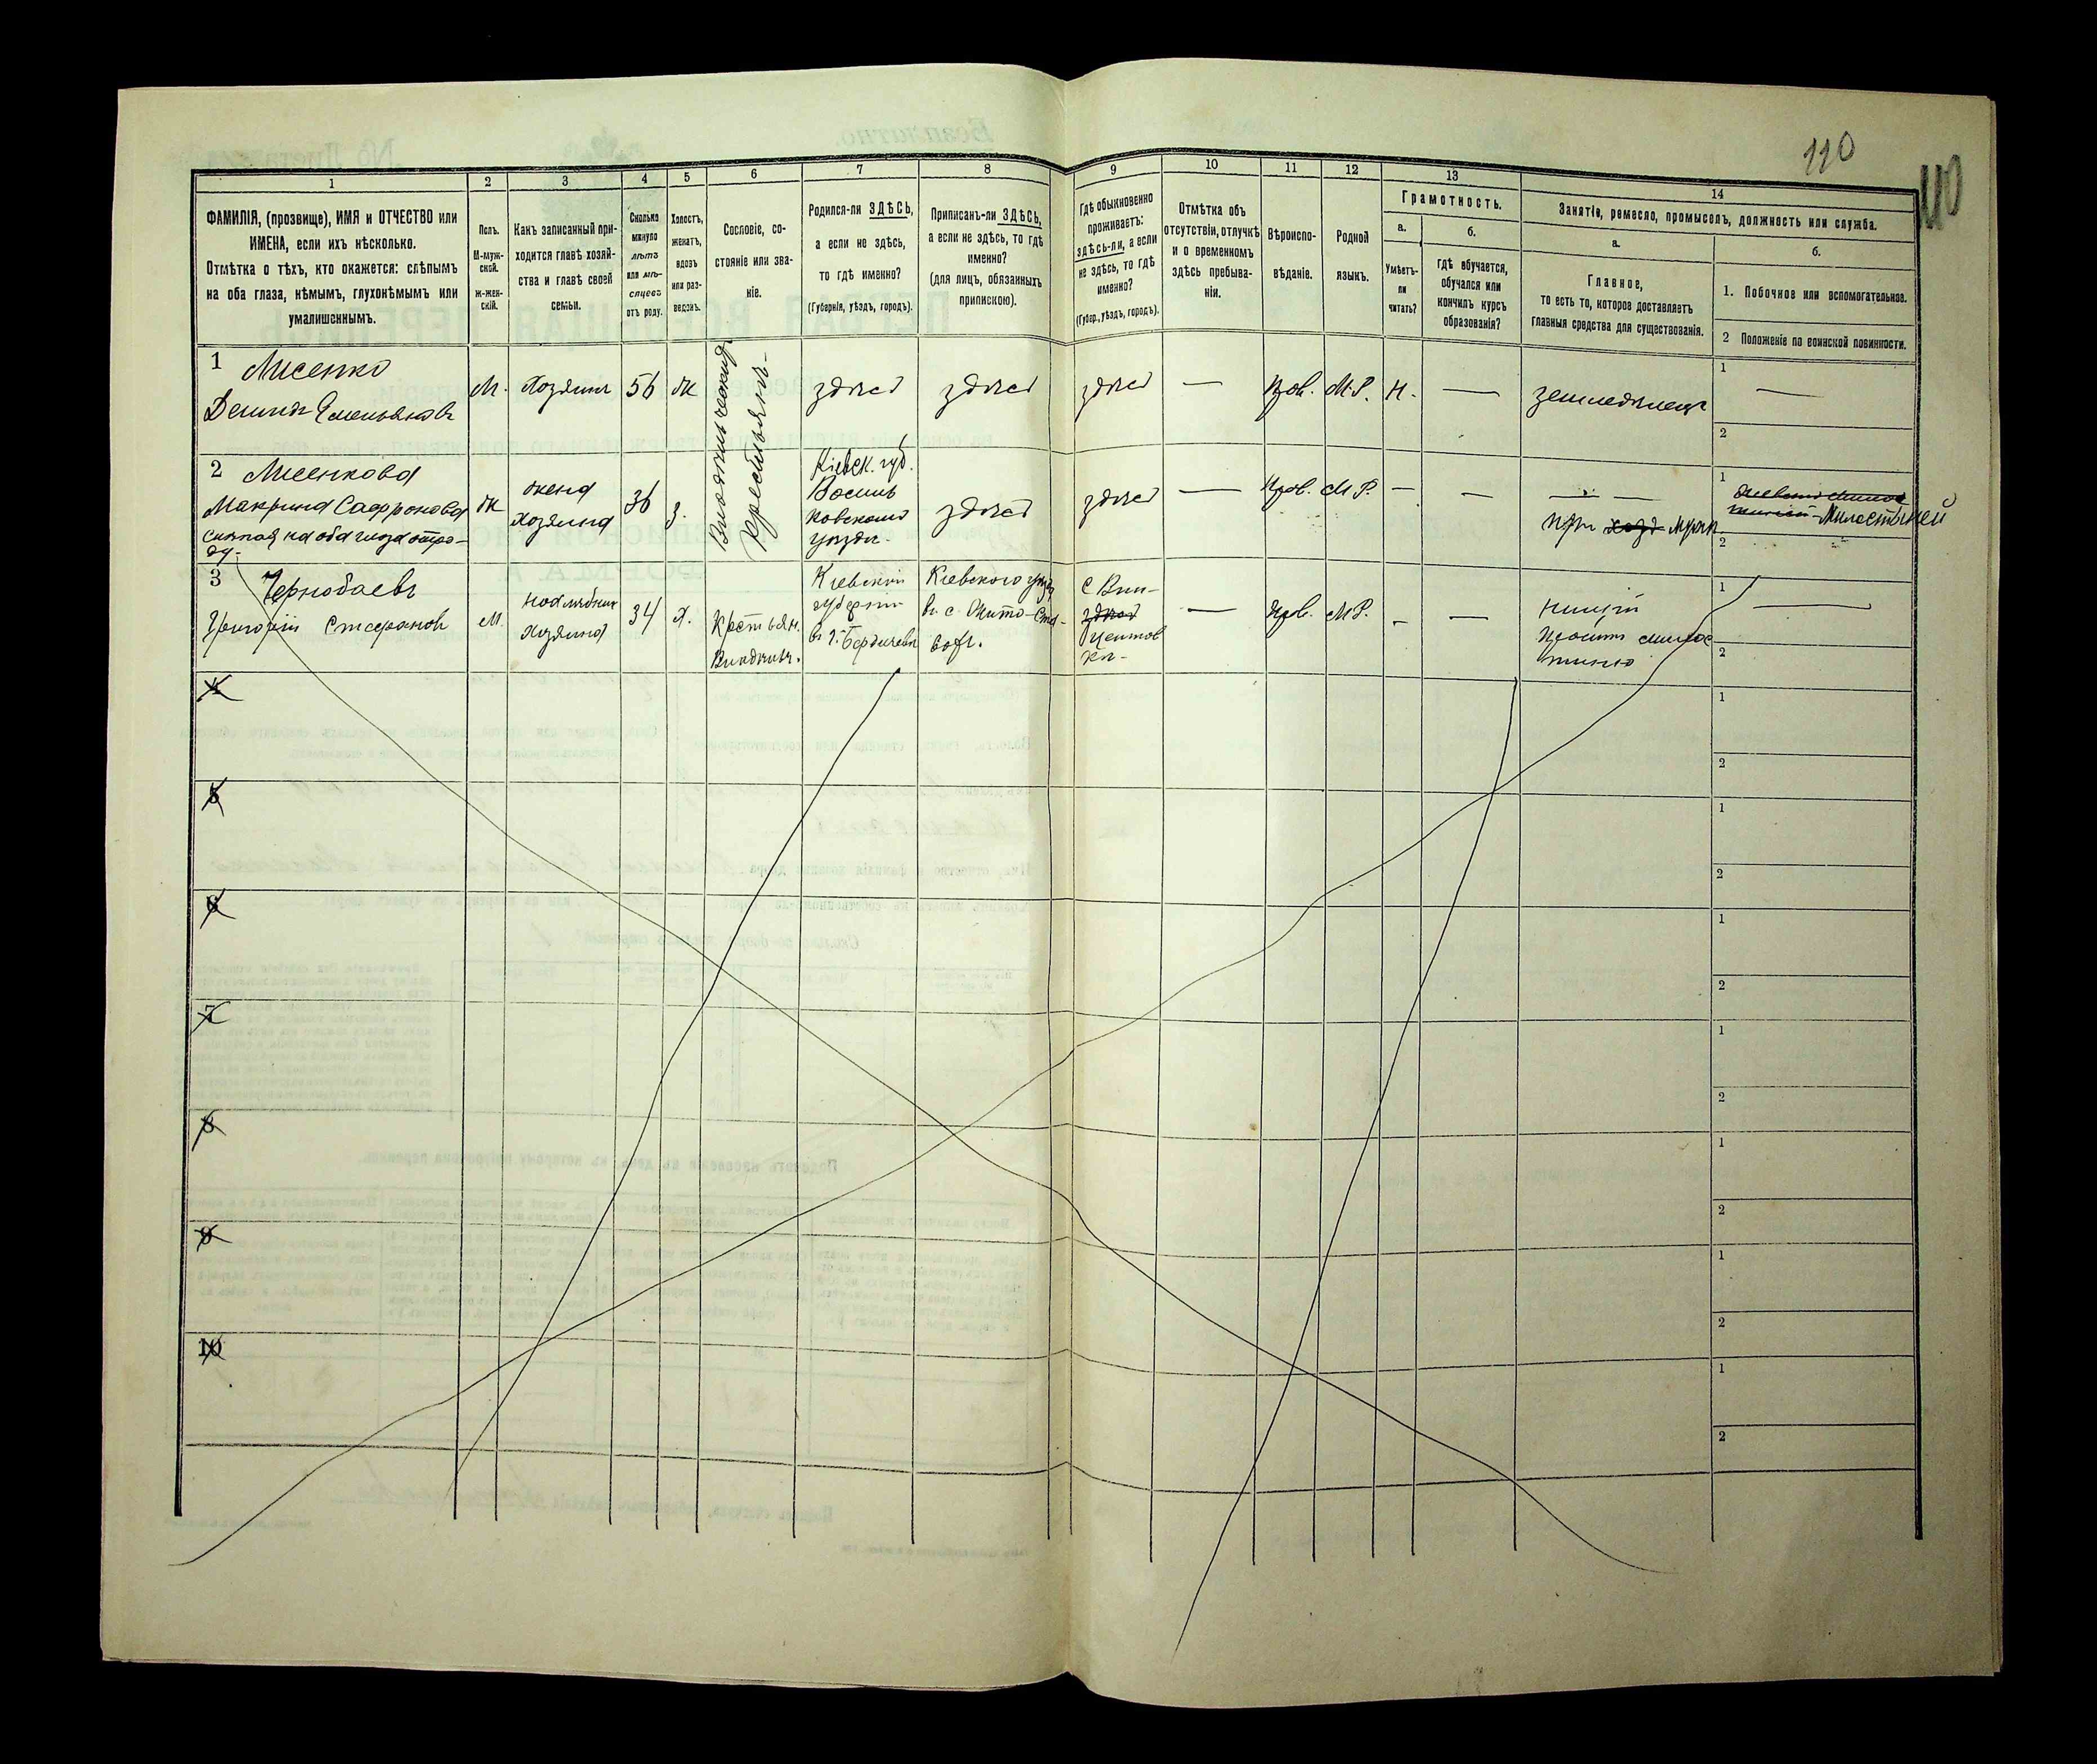 110
110
1
2
3
4
5
6
7
8
9
10
11
12
13
14
ФАМИЛІЯ, (прозвище), ИМЯ и ОТЧЕСТВО или
ИМЕНА, если ихъ нѣсколько.
Отмѣтка о тѣхъ, кто окажется: слѣпымъ
на оба глаза, нѣмымъ, глухонѣмымъ или
умалишеннымъ.
Полъ.
М-муж-
ской.
ж-жен-
скій.
Какъ записанный при-
ходится главѣ хозяй-
ства и главѣ своей
семьи.
Сколько
минуло
лѣтъ
или мѣ-
сяцевъ
отъ роду.
Холостъ,
женатъ,
вдовъ
или раз-
веденъ.
Сословіе, со-
стояніе или зва-
ніе.
Родился-ли ЗДѢСЬ,
а если не здѣсь,
то гдѣ именно?
(Губернія, уѣздъ, городъ).
Приписанъ-ли ЗДѢСЬ,
а если не здѣсь, то гдѣ
именно?
(для лицъ, обязанныхъ
припискою).
Гдѣ обыкновенно
проживаетъ:
здѣсь-ли, а если
не здѣсь, то гдѣ
именно?
(Губер., уѣздъ, городъ).
Отмѣтка объ
отсутствіи, отлучкѣ
и о временномъ
здѣсь пребыва-
ніи.
Вѣроиспо-
вѣданіе.
Родной
языкъ.
Грамотность.
а.
Умѣетъ-
ли
читать?
б.
гдѣ обучается,
обучался или
кончилъ курсъ
образованія?
Занятіе, ремесло, промыселъ, должность или служба.
а.
Главное,
то есть то, которое доставляетъ
главныя средства для существованія.
б.
1. Побочное или вспомогательное.
2 Положеніе по воинской повинности.
1 Лисенко
Демидъ Емельяновъ
М.
Хозяинъ
56
ж
крестьянинъ
здѣсь
здѣсь
здѣсь
—
Прав.
М.Р.
Н.
—
земледѣлецъ
1 —
2
2 Лисенкова
Макрина Сафронова
слѣпая на оба глаза отро-
ду.
ж
жена
хозяина
36
з.
Кіевск. губ.
Василь
ковского
уѣзда.
здѣсь
здѣсь
—
Прав.
М.Р.
—
—
при мужѣ
1 Милостыней
2
3 Чернобаевъ
Григорій Стефановъ
М.
нахлѣбник
хозяина
34
Х.
Крестьян.
Кіевской
губерніи
въ г. Бердичевѣ
Кіевского уѣзд
въ с. Жито-
с Вин-
здѣсь
—
Прав.
М.Р.
—
—
нищій
проситъ милос
тиню
1 —
2
4
1
2
5
1
2
6
1
2
7
1
2
8
1
2
9
1
2
10
1
2